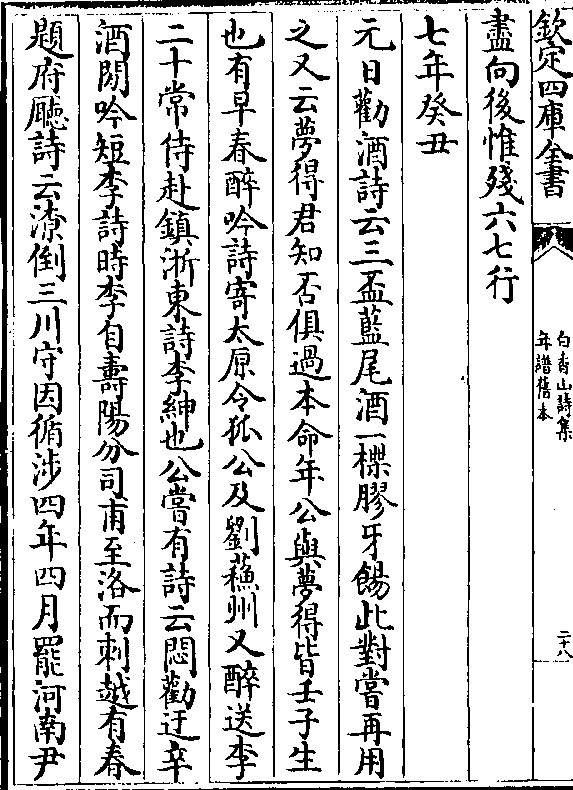 欽定四庫全書
白香山詩集
年譜舊本
二十八
盡向後惟殘六七行
七年癸丑
元日勸酒詩云三盃藍尾酒一楪膠牙餳此對嘗再用
之又云夢得君知否俱過本命年公與夢得皆壬子生
也有早春醉吟詩寄太原令狐公及劉蘓州又醉送李
二十常侍赴鎮浙東詩李紳也公嘗有詩云悶勸迂辛
酒閒吟短李詩時李自壽陽分司甫至洛而刺越有春
題府廳詩云潦倒三川守因循涉四年四月罷河南尹